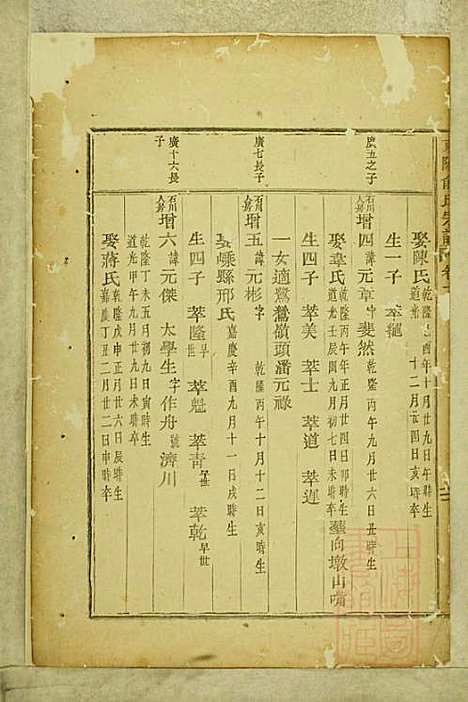 娶陳氏乾隆 酉年十月廿九日午時生
道光 十二月廿四日亥時卒
生一子 萃
廣五之子
石川人房增四諱元章字斐然乾隆丙午年九月廿六日丑時生
娶韋氏乾隆丙午年正月廿四日卯時生
道光壬辰閏九月初七日未時卒 葬向墩山嘴
生四子 萃美 萃士 萃道 萃遲
一女適鷺鷥嶺頭潘元祿
廣七長子
石川人房增五諱元彬字 乾隆丙午十月十二日亥時生
娶嵊縣邢氏嘉慶辛酉九月十一日戌時生
生四子 萃隆早世 萃魁 萃青 萃乾早世
廣十六長子
石川人房增六諱元傑 太學生字作舟號濟川
乾隆丁未五月初九日寅時生
道光甲午九月廿九日亥時卒
娶蔣氏乾隆戊申正月廿六日辰時生
嘉慶丁丑二月廿二日申時卒
俞氏宗譜